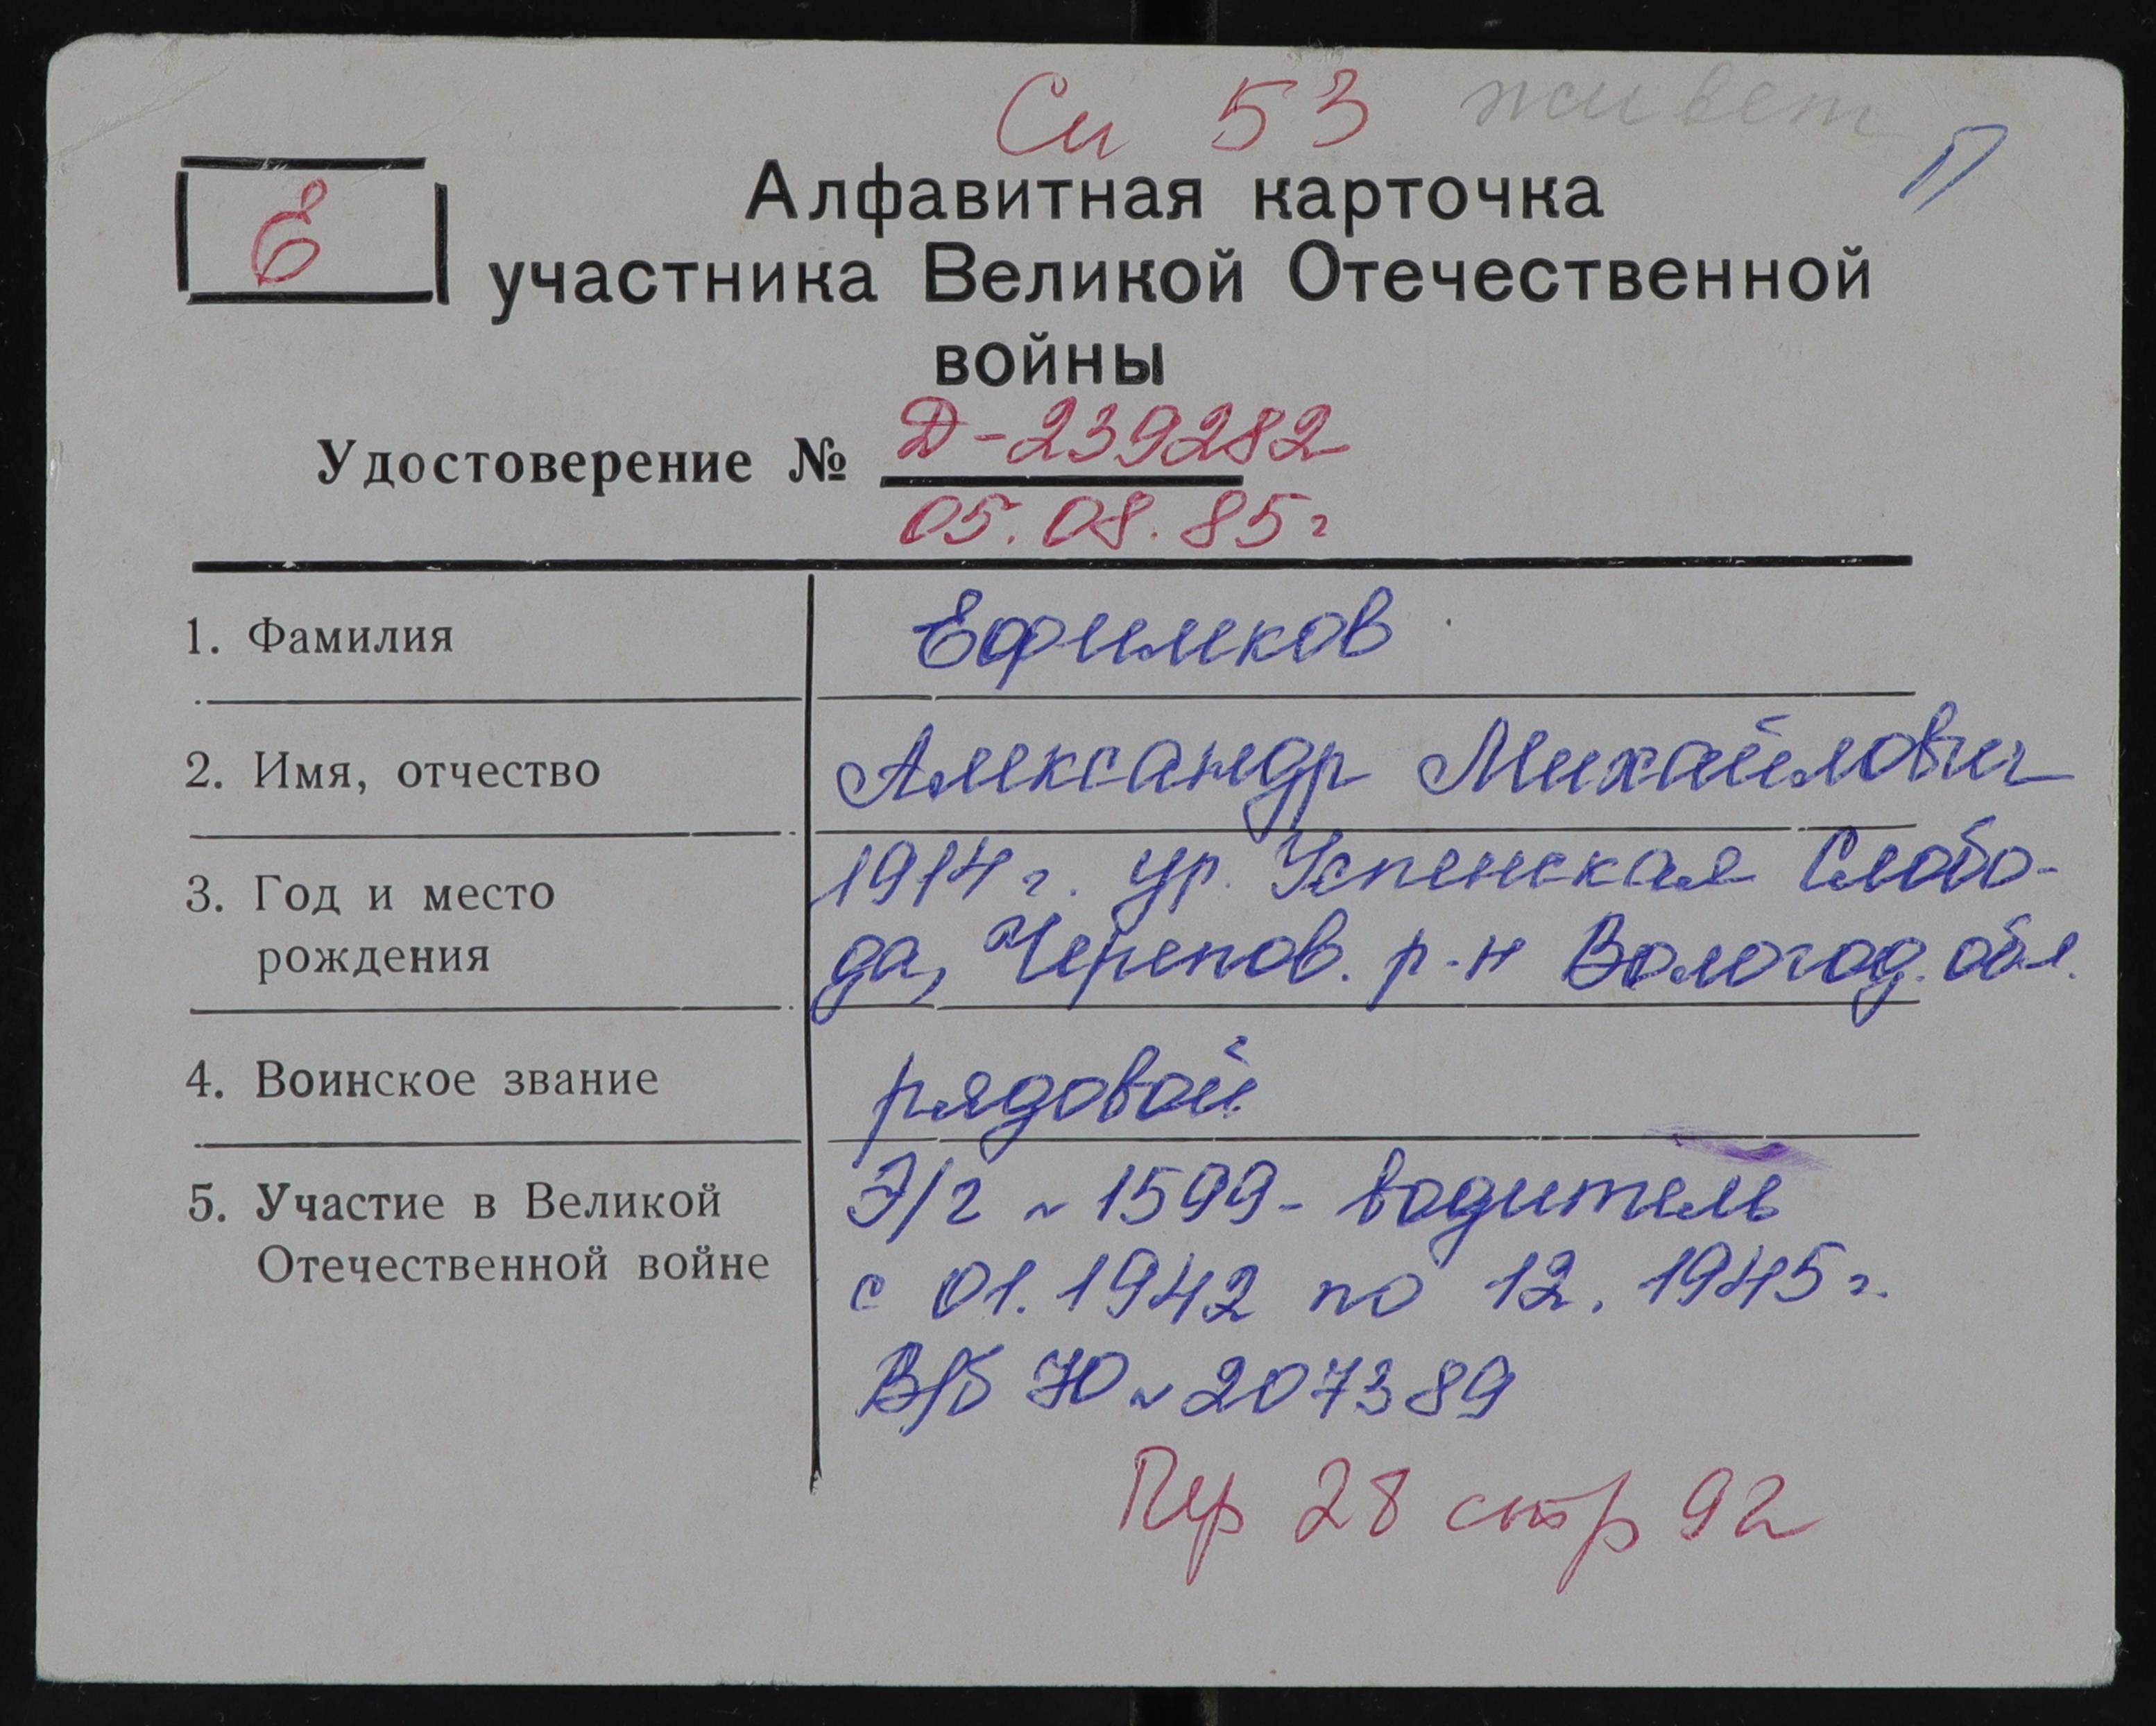 Си 53 живет
П
Е
Алфавитная карточка
участника Великой Отечественной
войны
Удостоверение № Д-239282
05.08.85г
1. Фамилия Ефимков
2. Имя, отчество Александр Михайлович
3. Год и место рождения 1914 г. ур. Успенская Слобо-
да, Черепов. р-н Вологод. обл.
4. Воинское звание рядовой
5. Участие в Великой Отечественной войне Э/г № 1599 - водитель
с 01.1942 по 12.1945 г.
В/б НО № 207389
Пр 28 стр 92